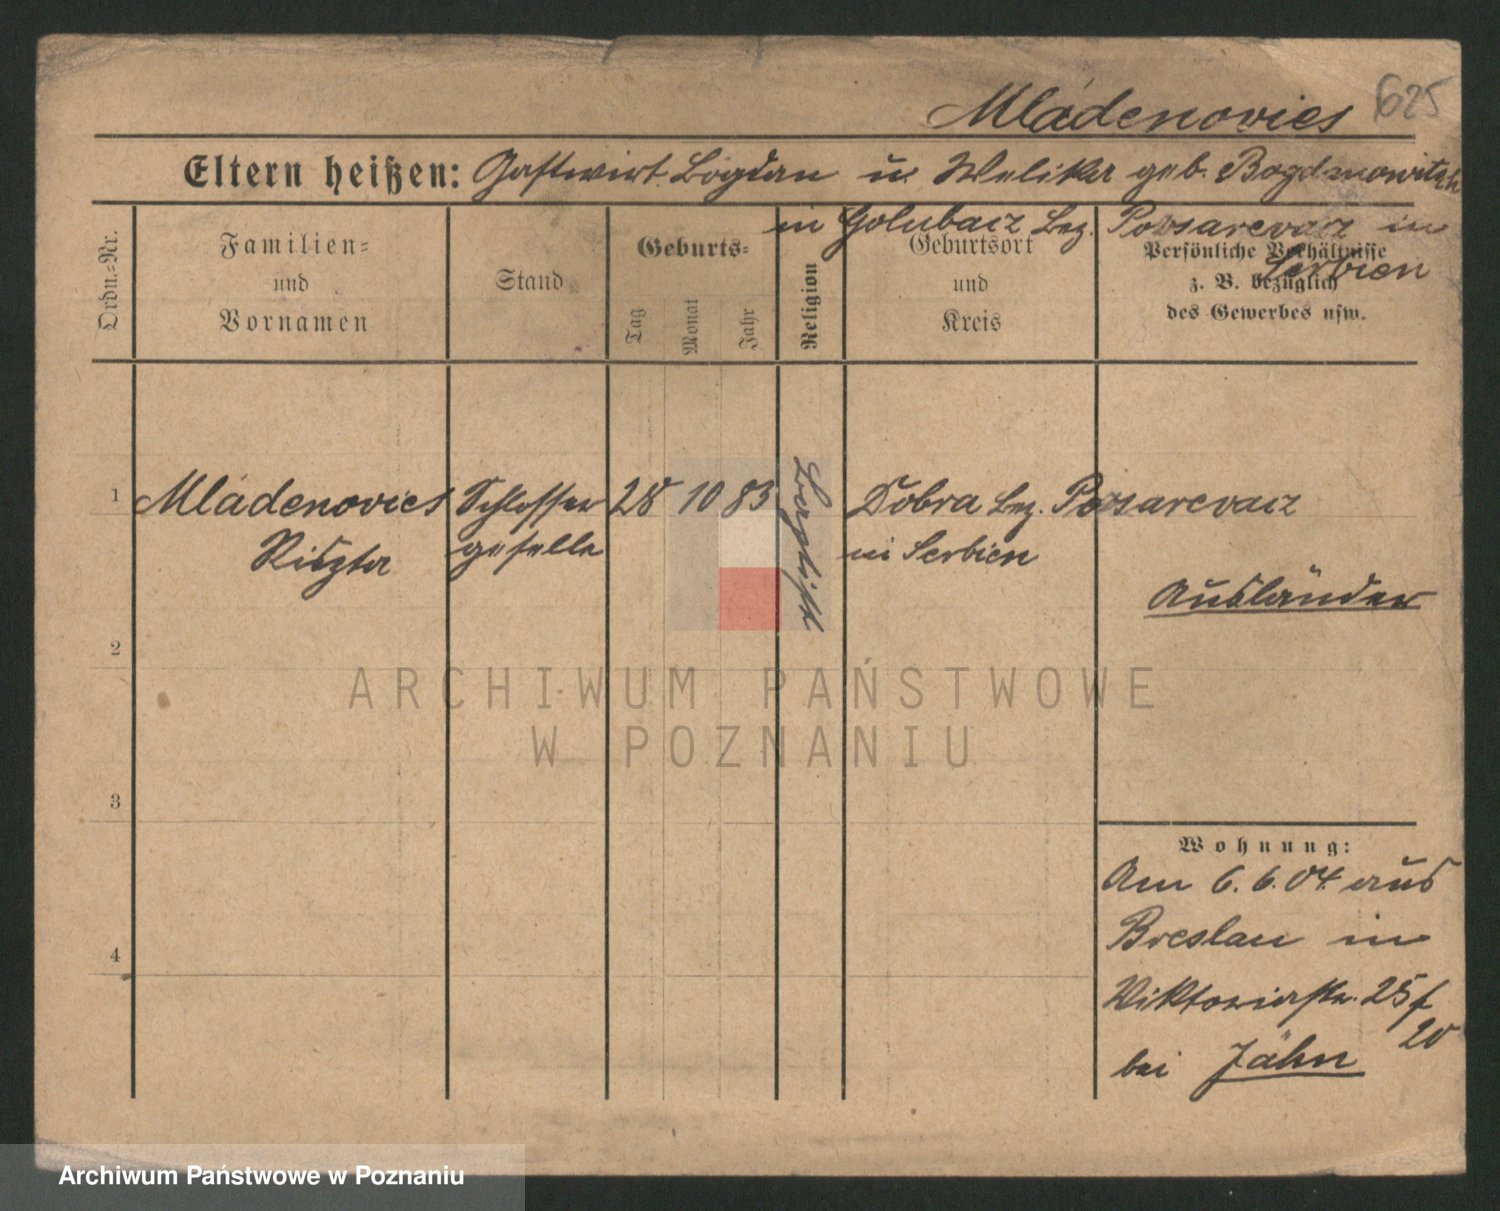 625
Mládenovics
Eltern heißen: Gastwirt Bogdan u. Welika geb. Bogdanowitsch
in Golubacz Bez. Pozsarevacz in
Serbien
Ordn.-Nr.
Familien-
und
Vornamen
Stand
Geburts-
Tag
Monat
Jahr
Religion
Geburtsort
und
Kreis
Persönliche Verhältnisse
z. B. bezüglich
des Gewerbes usw.
1
Mládenovics
Riszta
Schlosser
geselle
28 10 83
Baptist
Dobra Bez. Pozsarevacz
in Serbien
Ausländer
2
3
4
Wohnung:
Am 6.6.04 aus
Breslau in
Viktoriastr. 25 f
20
bei Jähn
ARCHIWUM PAŃSTWOWE
W POZNANIU
Archiwum Państwowe w Poznaniu